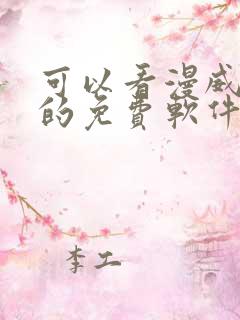 可以看漫威
的免費軟件
李工